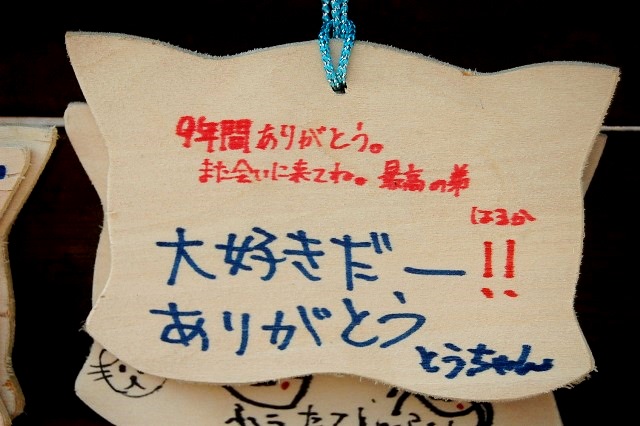 9年間ありがとう。
また会いに来てね。最高の弟
はるか
大好きだー!!
ありがとう
とうちゃん